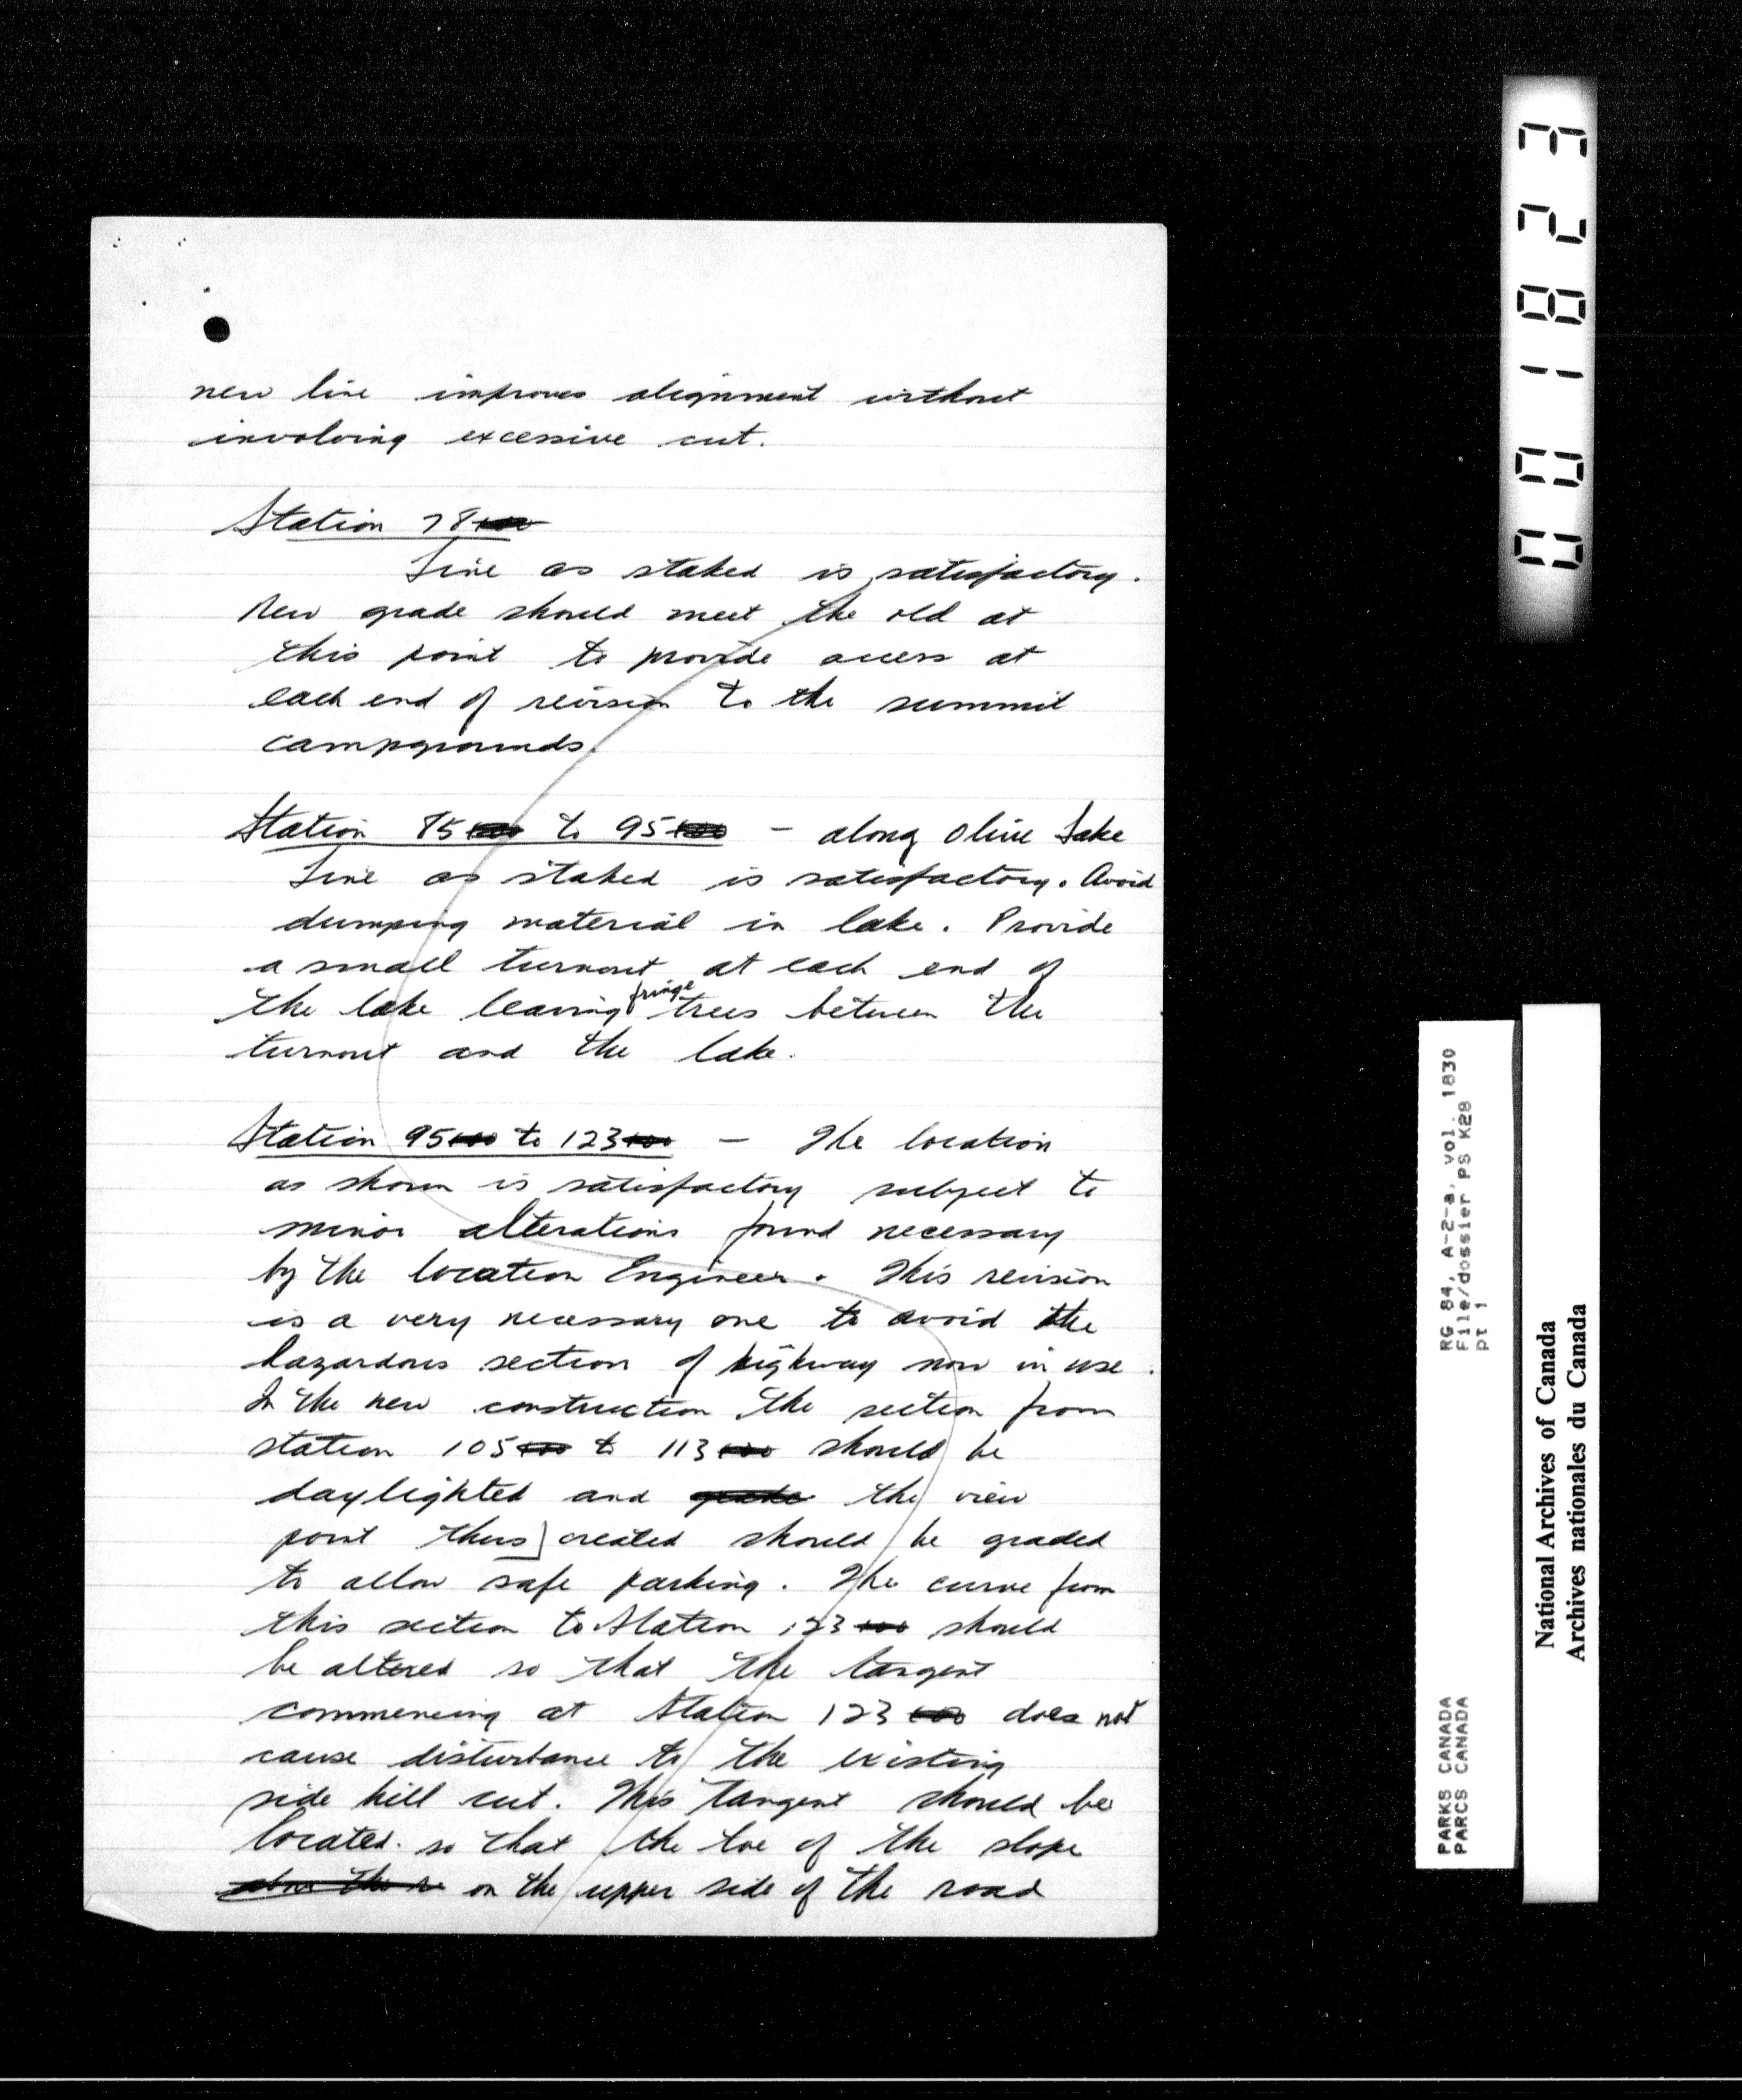 new line improves alignment without
involving excessive cut.
Station 78+00
Line as staked is satisfactory.
New grade should meet the old at
this point to provide access at
each end of revision to the summit
campgrounds.
Station 85+00 to 95+00 - along Olive Lake
Line as staked is satisfactory. Avoid
dumping material in lake. Provide
a small turnout at each end of
the lake leaving fringe trees between the
turnout and the lake.
Station 95+00 to 123+00 - The location
as shown is satisfactory subject to
minor alterations found necessary
by the location Engineer. This revision
is a very necessary one to avoid the
hazardous section of highway now in use.
In the new construction the section from
station 105+00 to 113+00 should be
daylighted and grade the view
point thus created should be graded
to allow safe parking. The curve from
this section to Station 123+00 should
be altered so that the tangent
commencing at Station 123+00 does not
cause disturbance to the existing
side hill cut. This tangent should be
located so that the toe of the slope
on the upper side of the road
001823
RG 84, A-2-a, vol. 1830
File/dossier PS K28
pt 1
PARKS CANADA
PARCS CANADA
National Archives of Canada
Archives nationales du Canada